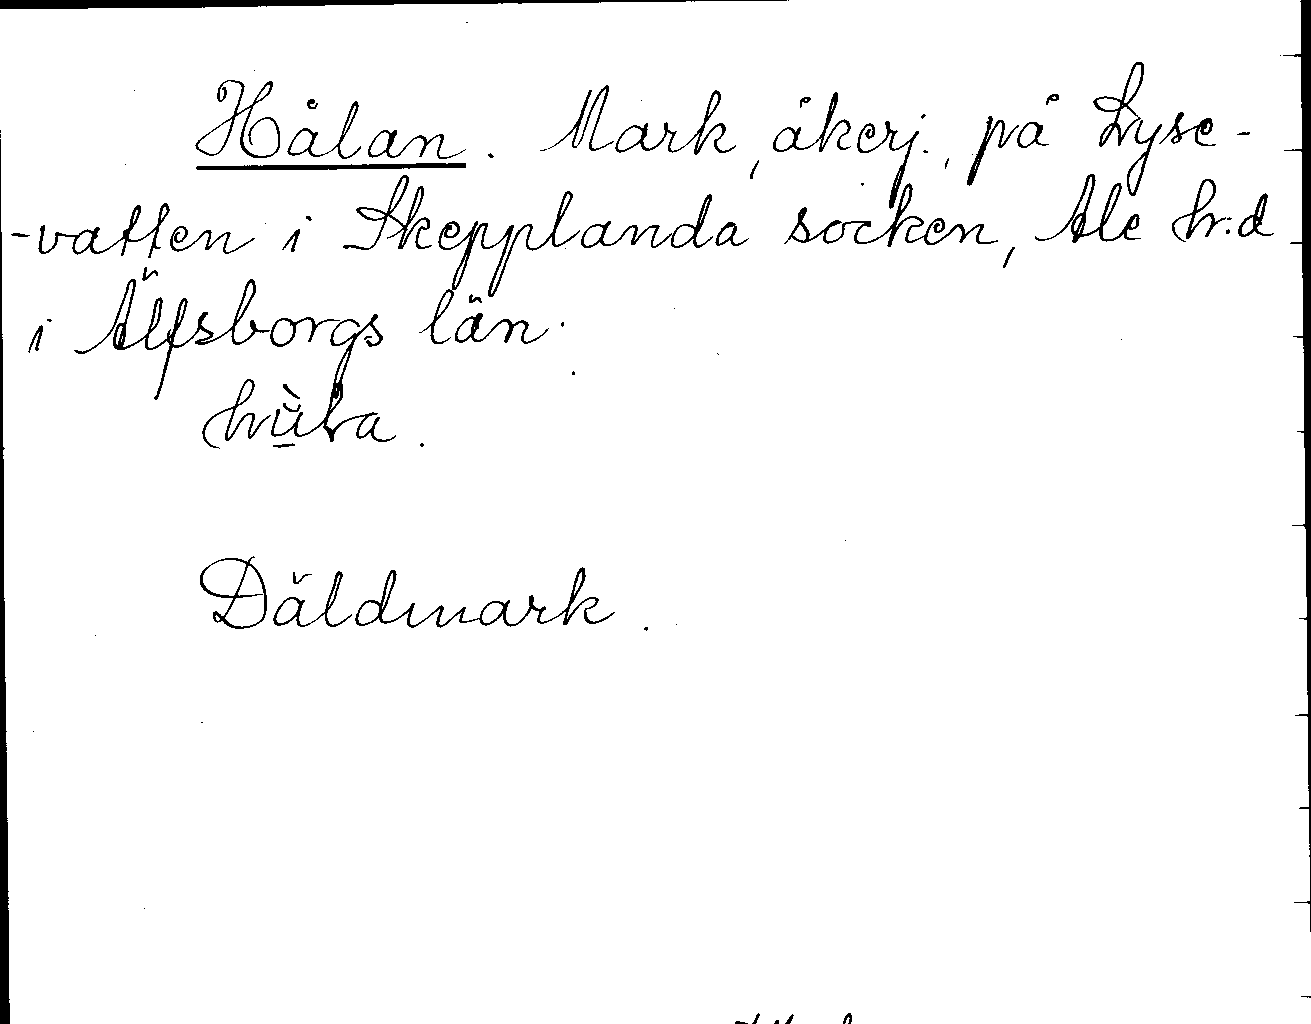 Hålan. Mark, åkerj., på Lyse-
-vatten i Skepplanda socken, Ale h:d
i Älfsborgs län.
Däldmark.